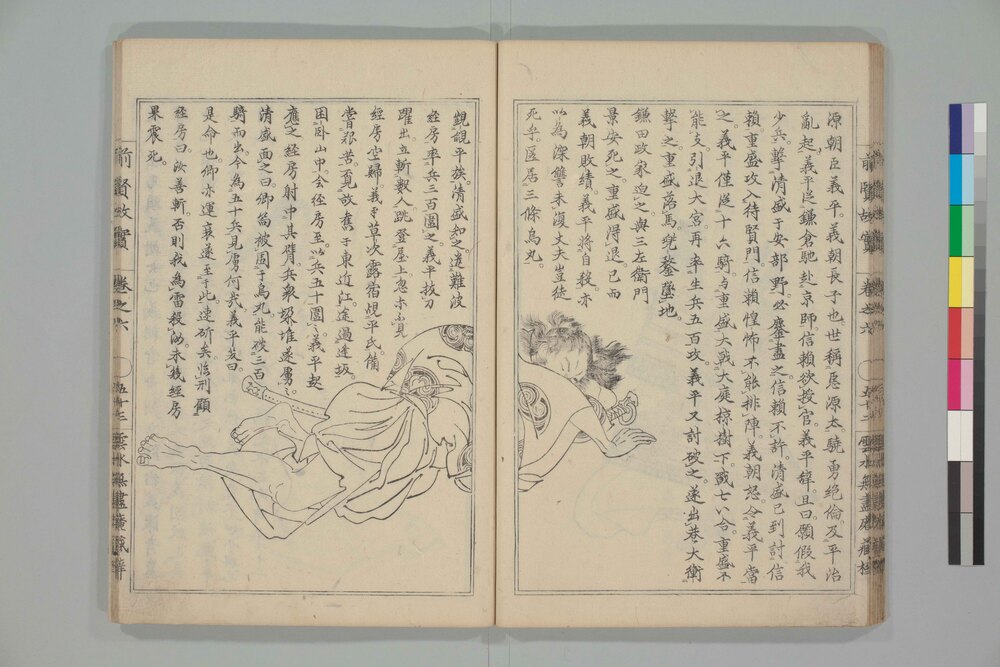 源朝臣義平。義朝長子也。世稱惡源太。驍勇絶倫。及平治
亂起。義平從鎌倉馳赴京師。信賴欲授官。義平辭。且曰。願假我
少兵。擊清盛于安部野。必鏖盡之。信賴不許。清盛已到討信
賴。重盛攻入待賢門。信賴惶怖不能排陣。義朝怒。令義平當
之。義平僅從十六騎。与重盛大戰大庭椋樹下。戰七八合。重盛不
能支。引退大宮。再率生兵五百攻。義平又討破之。遂出巷大衝
擊之。重盛落馬。兜鍪墜地。
鎌田政家迫之。與三左衛門
景安死之。重盛得退。已而
義朝敗績。義平將自殺。亦
以為深讐未復。丈夫豈徒
死乎。匿居三條烏丸。
覬覦平族。清盛知之。遣難波
經房率兵三百圍之。義平拔刀
躍出。立斬數人。跳登屋上。忽亦不見。
經房空歸。義平草次露宿。覘平氏。備
嘗艱苦。覓故舊于東近江。途過逢坂。
困臥山中。會經房至。以兵五十圍之。義平起
應之。經房射中其臂。兵衆麕堆。遂虜。
清盛面之曰。卿嘗被圍于烏丸。能破三百
騎而出。今為五十兵見虜何哉。義平笑曰。
是命也。卿亦運衰。遂至于此。速斫矣。臨刑。顧
經房曰。汝善斬。否則我為雷殺汝。未幾經房
果震死。
前賢故實
卷之六
五十二
雲水無盡庵藏梓